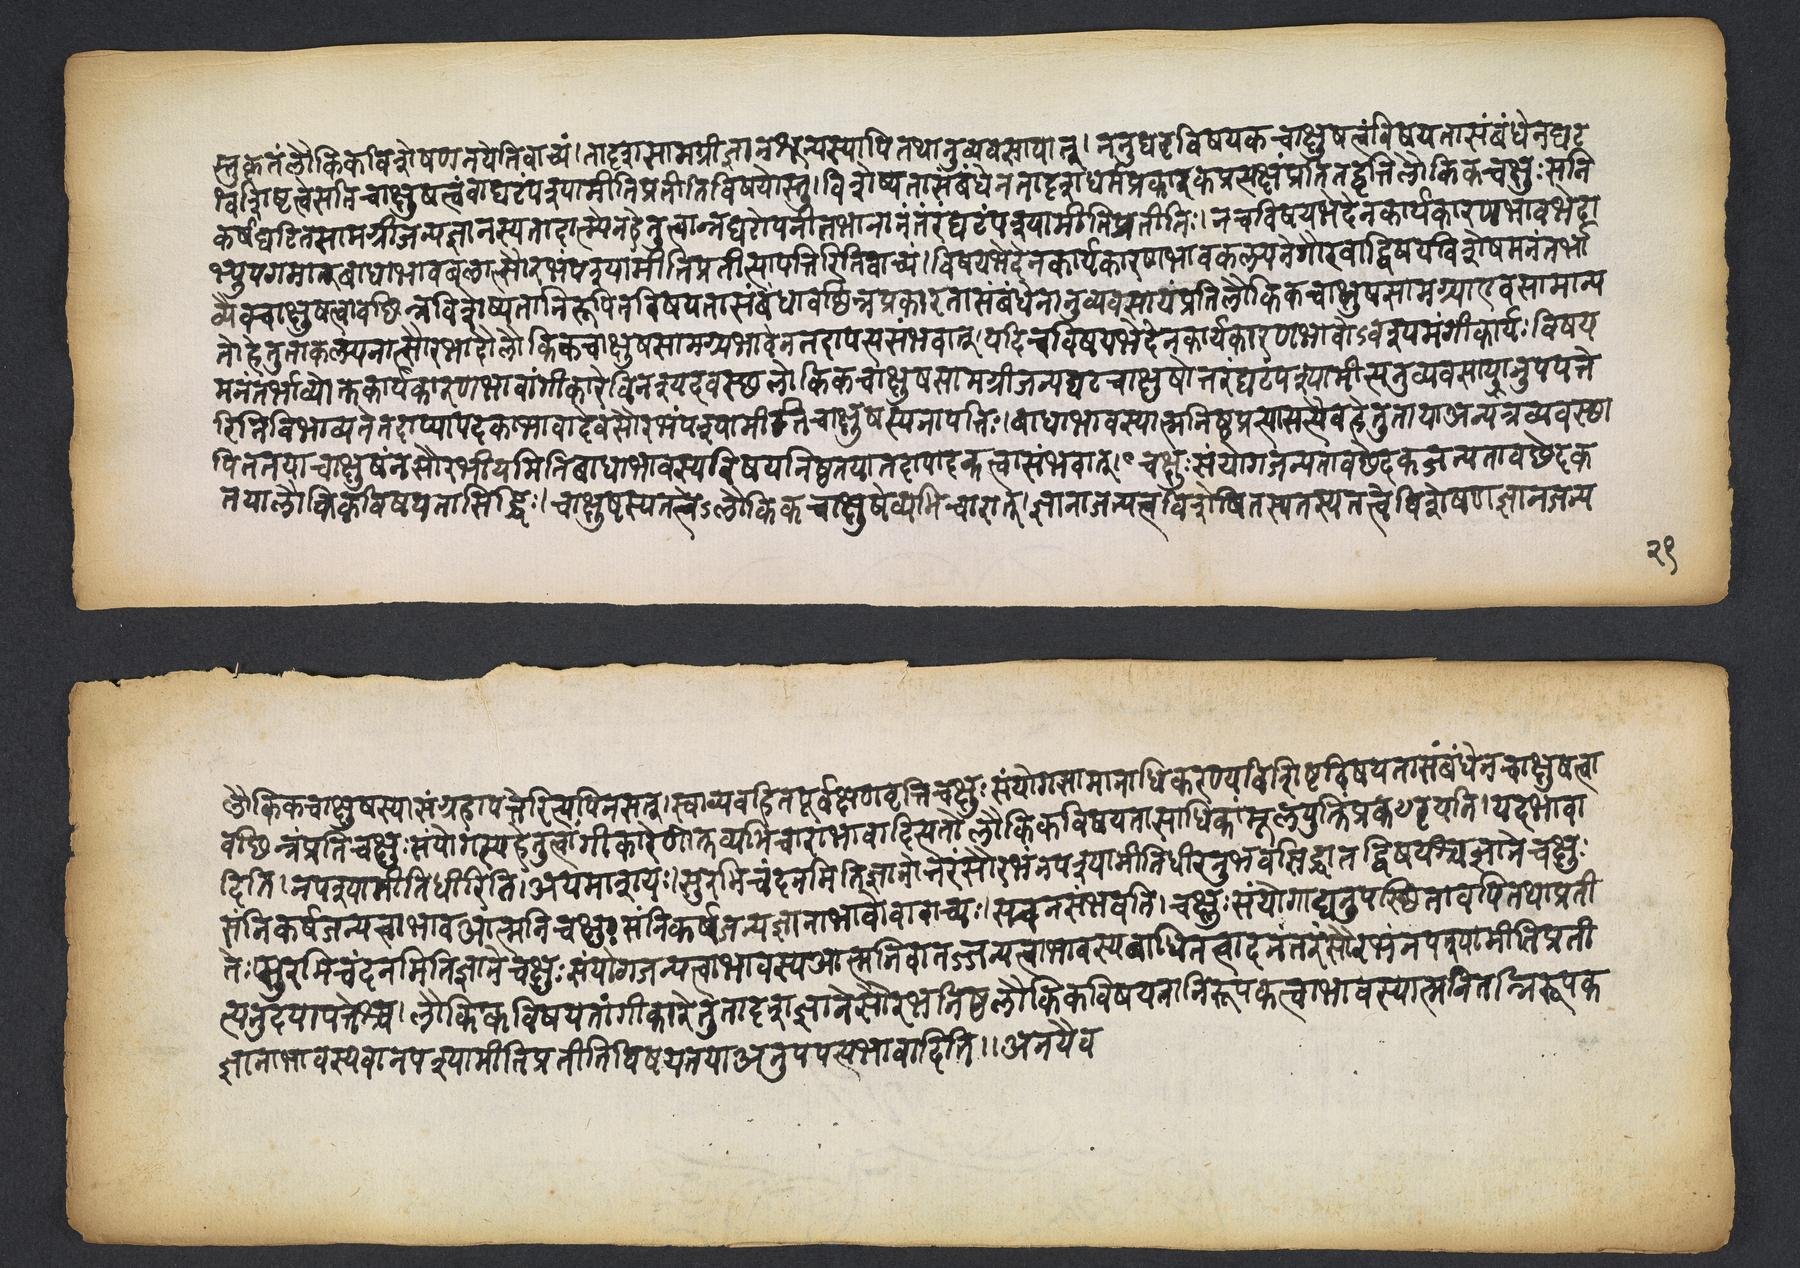 स्तुकेतंलौकिकविशेषणतयेतिवाच्यं।तादृशसामग्रीज्ञानशून्यस्यापितथानुव्यवसायात्।ननुघटविषयकचाक्षुषत्वंविषयतासंबंधेनघट
विशिष्टत्वेसतिचाक्षुषत्वंवाघटंपश्यामीतिप्रतीतिविषयोस्तु।विशेष्यतासंबंधेनतादृशधर्मप्रकारकप्रत्यक्षंप्रतितद्वृत्तिलौकिकचक्षुःसंनि
कर्षघटितसामग्रीजन्यज्ञानस्यतादात्म्येनहेतुत्वान्नघटोपनीतभानानंतरंघटंपश्यामीतिप्रतीतिः।नचविषयभेदेनकार्यकारणभावभेदा
भ्युपगमात्बाधाभावबलात्सौरभंपश्यामीतिप्रतीत्यापत्तिरितिवाच्यं।विषयभेदेनकार्यकारणभावकल्पनेगौरवाद्विषयविशेषमनंतर्भा
व्यैवचाक्षुषत्वावच्छिन्नविशेष्यतानिरूपितविषयतासंबंधावच्छिन्नप्रकारतासंबंधेनानुव्यवसायंप्रतिलौकिकचाक्षुषसामग्र्याएवसामान्य
तोहेतुताकल्पनात्सौरभादौलौकिकचाक्षुषसामग्र्यभावेनतदापत्त्यसंभवात्।यदिचविषयभेदेनकार्यकारणभावोऽवश्यमंगीकार्यः।विषय
मनंतर्भाव्योक्तकार्यकारणभावांगीकारेविनश्यदवस्थलौकिकचाक्षुषसामग्रीजन्यघटचाक्षुषोत्तरंघटंपश्यामीत्यनुव्यवसायानुपपत्ते
रितिविभाव्यतेतदाप्यापादकाभावादेवसौरभंपश्यामीतिचाक्षुषस्यनापत्तिः।बाधाभावस्यात्मनिष्ठप्रत्यासत्त्यैवहेतुतायाअन्यत्रव्यवस्था
पितत्वयाचाक्षुषंनसौरभीयमितिबाधाभावस्यविषयनिष्ठतयातदापादकत्वासंभवात्।चक्षुःसंयोगजन्यतावच्छेदकजन्यतावच्छेदक
तयालौकिकविषयतासिद्धिः।चाक्षुषस्यतत्त्वेऽलौकिकचाक्षुषेव्यभिचारात्।ज्ञानाजन्यत्वविशेषितस्यतस्यतत्त्वेविशेषणज्ञानजन्य
२९
लौकिकचाक्षुषस्यासंग्रहापत्तेरित्यपिनसत्।स्वाव्यवहितपूर्वक्षणवृत्तिचक्षुःसंयोगसामानाधिकरण्यविशिष्टविषयतासंबंधेनचाक्षुषत्वा
वच्छिन्नंप्रतिचक्षुःसंयोगस्यहेतुत्वांगीकारेणोक्तव्यभिचाराभावादित्यतोलौकिकविषयतासाधिकांमूलयुक्तिंप्रकटयति।यदभावा
दिति।नपश्यामीतिधीरिति।अयमाशयः।सुरभिचंदनमितिज्ञानोत्तरंसौरभंनपश्यामीतिधीरनुभवसिद्धातद्विषयश्चज्ञानेचक्षुः
संनिकर्षजन्यत्वाभावआत्मनिचक्षुःसंनिकर्षजन्यज्ञानाभावोवावाच्यः।सचनसंभवति।चक्षुःसंयोगाद्यनुपस्थितावपितथाप्रती
तेः।सुरभिचंदनमितिज्ञानेचक्षुःसंयोगजन्यत्वाभावस्यआत्मनिवातज्जन्यत्वाभावस्यबाधितत्वादनंतरंसौरभंनपश्यामीतिप्रती
त्यनुदयापत्तेश्च।लौकिकविषयतांगीकारेतुतादृशज्ञानेसौरभनिष्ठलौकिकविषयतानिरूपकत्वाभावस्यात्मनितन्निरूपक
ज्ञानाभावस्यैवानपश्यामीतिप्रतीतिविषयतयाअनुपपत्त्यभावादिति॥अनयैव